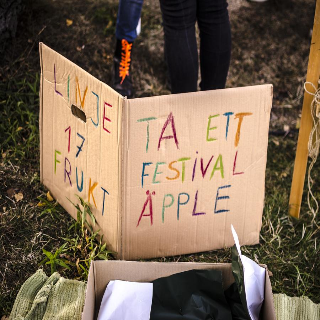 LINJE
17
FRUKT
TA ETT
FESTIVAL
ÄPPLE